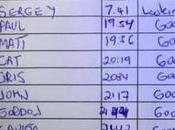 SERGEY 7.41 Lookin
PAUL 19:54 Goo
MATT 19:56 Goo
CAT 20:19 Goo
RIS Goo
JOHN 21:17 Goo
GORDON Goo